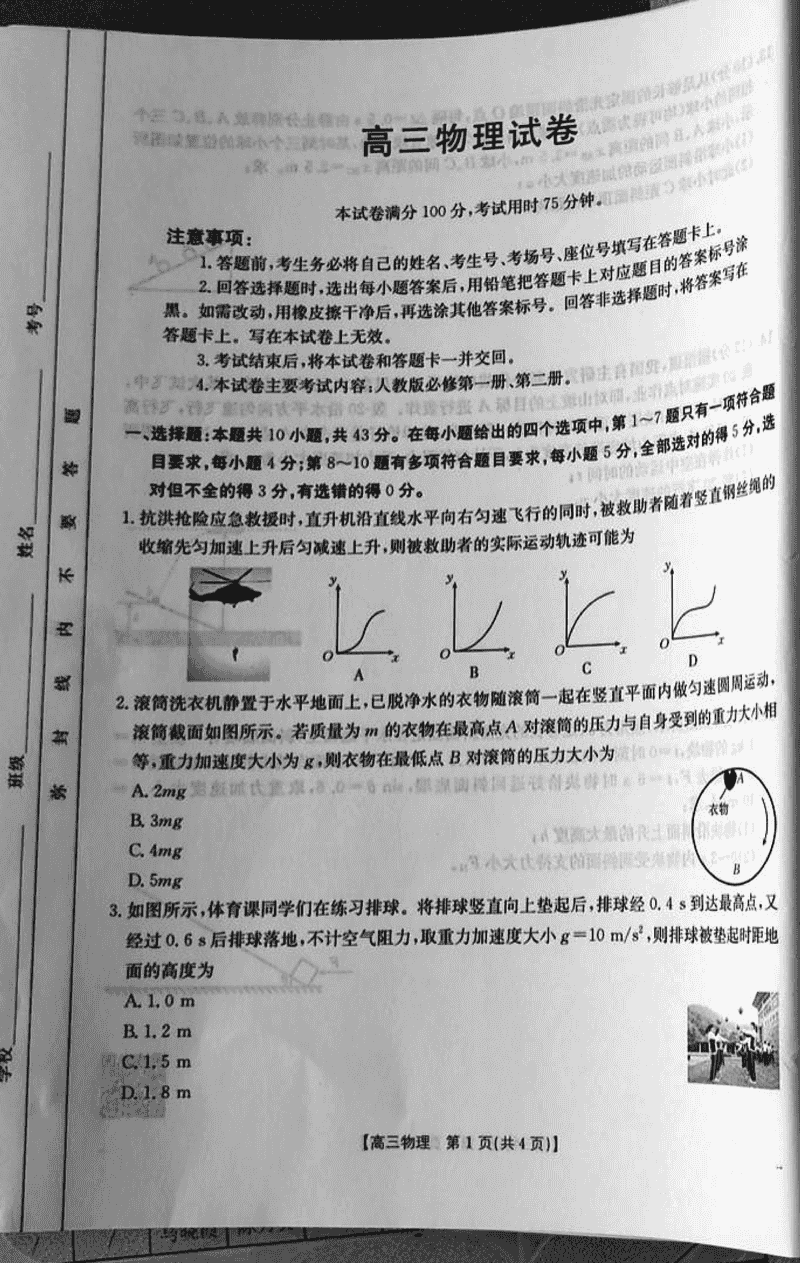 高三物理试卷
本试卷满分100分,考试用时75分钟。
注意事项:
1.答题前,考生务必将自己的姓名、考生号、考场号、座位号填写在答题卡上。
2.回答选择题时,选出每小题答案后,用铅笔把答题卡上对应题目的答案标号涂
黑。如需改动,用橡皮擦干净后,再选涂其他答案标号。回答非选择题时,将答案写在
答题卡上。写在本试卷上无效。
3.考试结束后,将本试卷和答题卡一并交回。
4.本试卷主要考试内容:人教版必修第一册、第二册。
一、选择题:本题共10小题,共43分。在每小题给出的四个选项中,第1~7题只有一项符合题
目要求,每小题4分;第8~10题有多项符合题目要求,每小题5分,全部选对的得5分,选
对但不全的得3分,有选错的得0分。
1.抗洪抢险应急救援时,直升机沿直线水平向右匀速飞行的同时,被救助者随着竖直钢丝绳的
收缩先匀加速上升后匀减速上升,则被救助者的实际运动轨迹可能为
y
O
x
A
y
O
x
B
y
O
x
C
y
O
x
D
2.滚筒洗衣机静置于水平地面上,已脱净水的衣物随滚筒一起在竖直平面内做匀速圆周运动,
滚筒截面如图所示。若质量为m的衣物在最高点A对滚筒的压力与自身受到的重力大小相
等,重力加速度大小为g,则衣物在最低点B对滚筒的压力大小为
A.2mg
B.3mg
C.4mg
D.5mg
A
衣物
B
3.如图所示,体育课同学们在练习排球。将排球竖直向上垫起后,排球经0.4 s到达最高点,又
经过0.6 s后排球落地,不计空气阻力,取重力加速度大小g=10 m/s²,则排球被垫起时距地
面的高度为
A.1.0 m
B.1.2 m
C.1.5 m
D.1.8 m
【高三物理 第1页(共4页)】
考号
姓名
班级
学校
弥 封 线 内 不 要 答 题